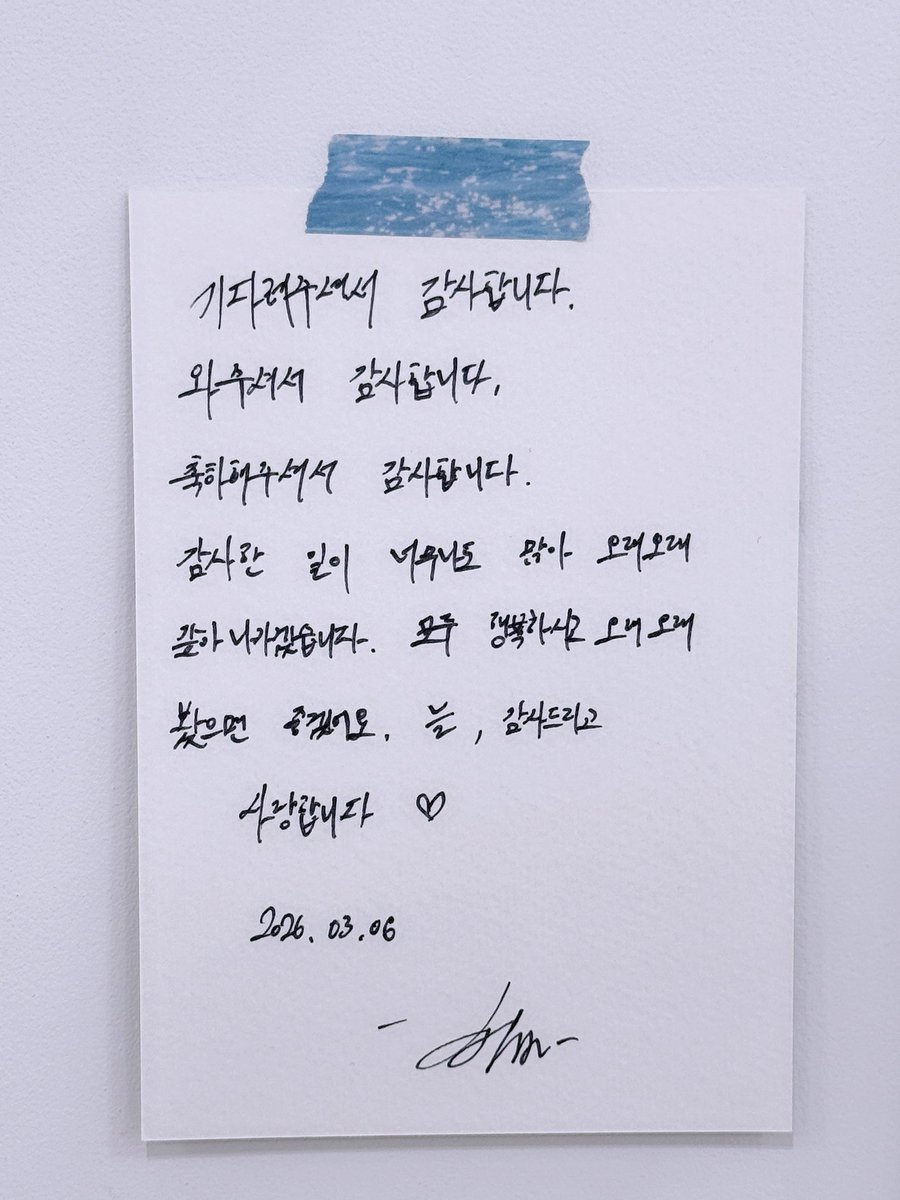 기다려주셔서 감사합니다.
와주셔서 감사합니다.
축하해주셔서 감사합니다.
감사한 일이 너무나도 많아 오래오래
갚아나가겠습니다. 모두 행복하시고 오래오래
봤으면 좋겠어요. 늘, 감사드리고
사랑합니다 ♡
2026.03.06